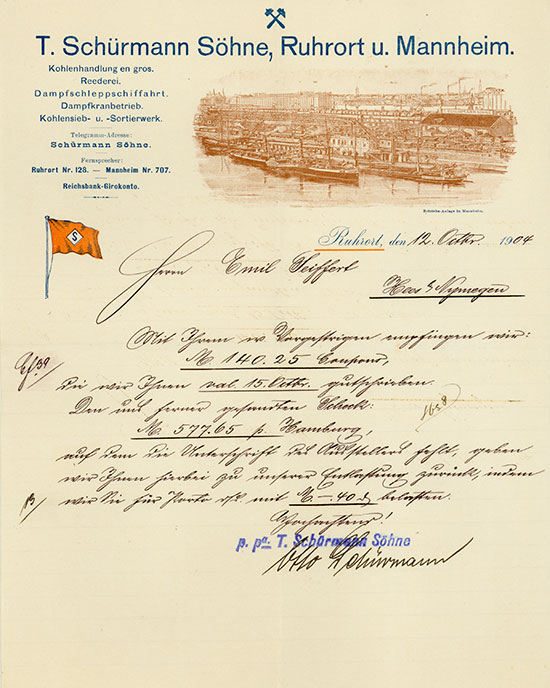 T. Schürmann Söhne, Ruhrort u. Mannheim.
Kohlenhandlung en gros.
Reederei.
Dampfschleppschiffahrt.
Dampfkranbetrieb.
Kohlensieb- u. -Sortierwerk.
Telegramm-Adresse:
Schürmann Söhne.
Fernsprecher:
Ruhrort Nr. 128. — Mannheim Nr. 707.
Reichsbank-Girokonto.
Betriebs-Anlage in Mannheim.
S
Ruhrort, den 12. Octbr. 1904
Herrn Emil Seiffert
Hees b/ Nymegen
Mit Ihrem w. Vorgestrigen empfingen wir:
M 140.25 Coupons,
die wir Ihnen val. 15. Octbr. gutschrieben.
Den uns ferner gesandten Scheck:
M. 577.65 p. Hamburg,
auf dem die Unterschrift des Ausstellers fehlt, geben
wir Ihnen hierbei zu unserer Entlastung zurück, indem
wir Sie für Porto etc. mit M. –.40 belasten.
Hochachtend!
p. pa. T. Schürmann Söhne
Otto Schürmann